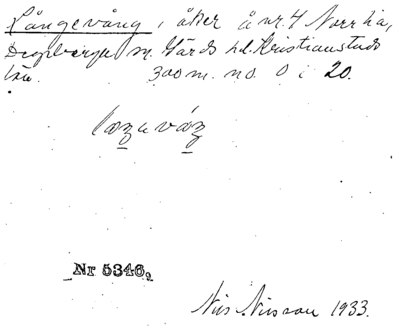 Långevång, åker å nr. 4 Norrhia,
Degeberga sn. Gärds hd. Kristianstads
län. 300 m. no. 0 i 20.
Nr 5346.
Nils Nilsson 1933.